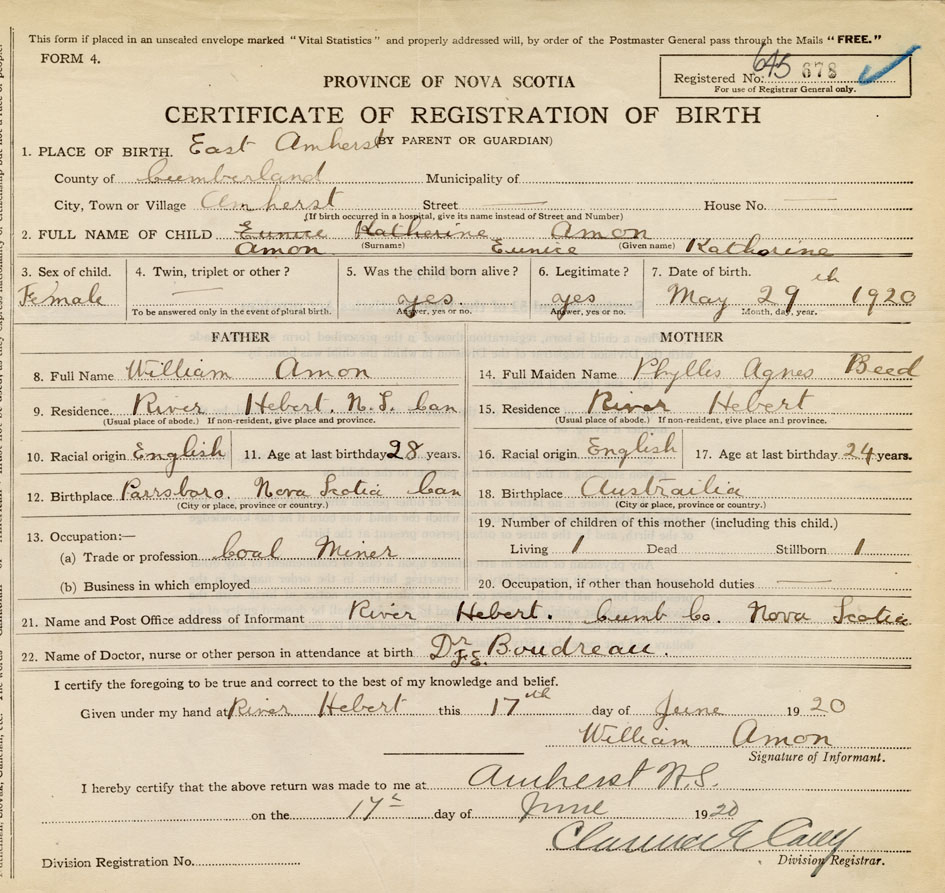 This form if placed in an unsealed envelope marked "Vital Statistics" and properly addressed will, by order of the Postmaster General pass through the Mails "FREE."
FORM 4.
Registered No. 645 678
For use of Registrar General only.
PROVINCE OF NOVA SCOTIA
CERTIFICATE OF REGISTRATION OF BIRTH
(BY PARENT OR GUARDIAN)
1. PLACE OF BIRTH. East Amherst
County of Cumberland Municipality of
City, Town or Village Amherst Street House No.
(If birth occurred in a hospital, give its name instead of Street and Number)
2. FULL NAME OF CHILD Eunice Katherine Amon
Amon (Surname) Eunice (Given name) Katharine
3. Sex of child. 4. Twin, triplet or other? 5. Was the child born alive? 6. Legitimate? 7. Date of birth.
Female yes. yes May 29th 1920
To be answered only in the event of plural birth. Answer, yes or no. Answer, yes or no. Month, day, year.
FATHER MOTHER
8. Full Name William Amon 14. Full Maiden Name Phyllis Agnes Beed
9. Residence. River Hebert. N.S. Can 15. Residence River Hebert
(Usual place of abode.) If non-resident, give place and province. (Usual place of abode.) If non-resident, give place and province.
10. Racial origin English 11. Age at last birthday 28 years. 16. Racial origin English 17. Age at last birthday 24 years.
12. Birthplace Parrsboro. Nova Scotia Can 18. Birthplace Austrailia
(City or place, province or country.) (City or place, province or country.)
13. Occupation:— 19. Number of children of this mother (including this child.)
(a) Trade or profession Coal Miner Living 1 Dead Stillborn 1
(b) Business in which employed 20. Occupation, if other than household duties
21. Name and Post Office address of Informant River Hebert. Cumb Co. Nova Scotia
22. Name of Doctor, nurse or other person in attendance at birth Dr F.E. Boudreau.
I certify the foregoing to be true and correct to the best of my knowledge and belief.
Given under my hand at River Hebert this 17th day of June 1920
William Amon
Signature of Informant.
I hereby certify that the above return was made to me at Amherst N.S.
on the 17th day of June 1920
Clarence E
Division Registrar.
Division Registration No.